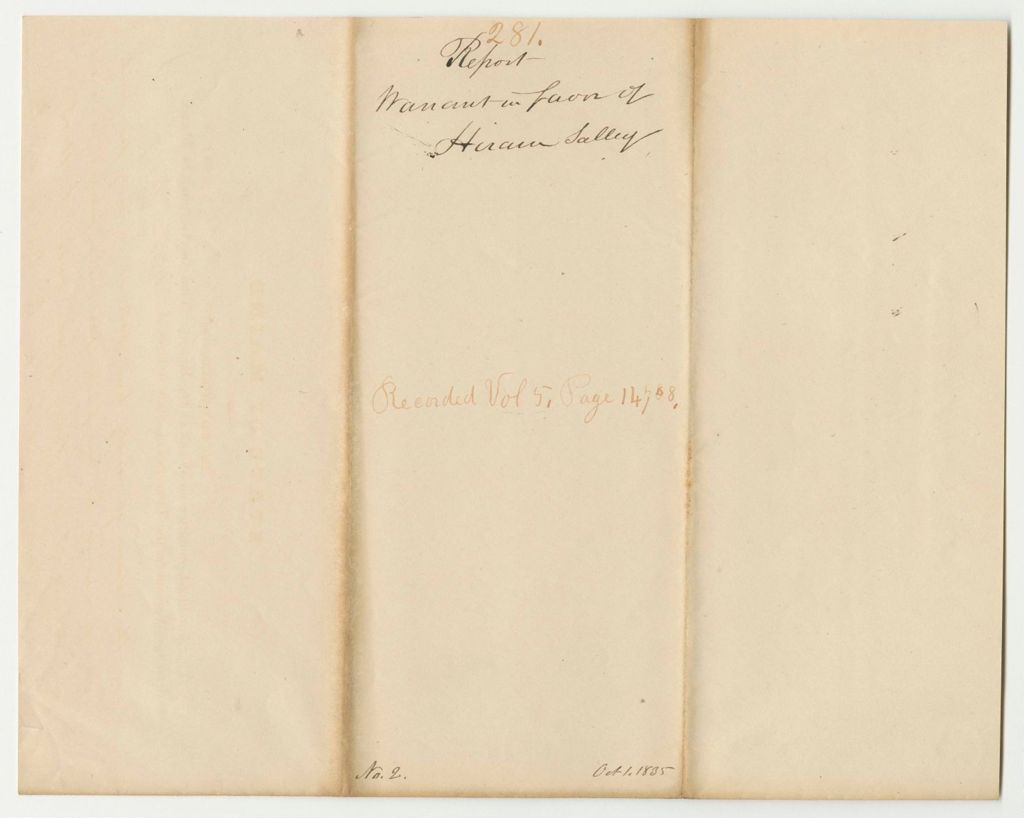 281.
Report
Warrant in favor of
Hiram Salley
Recorded Vol 5, Page
No. 2.
Oct 1. 1835